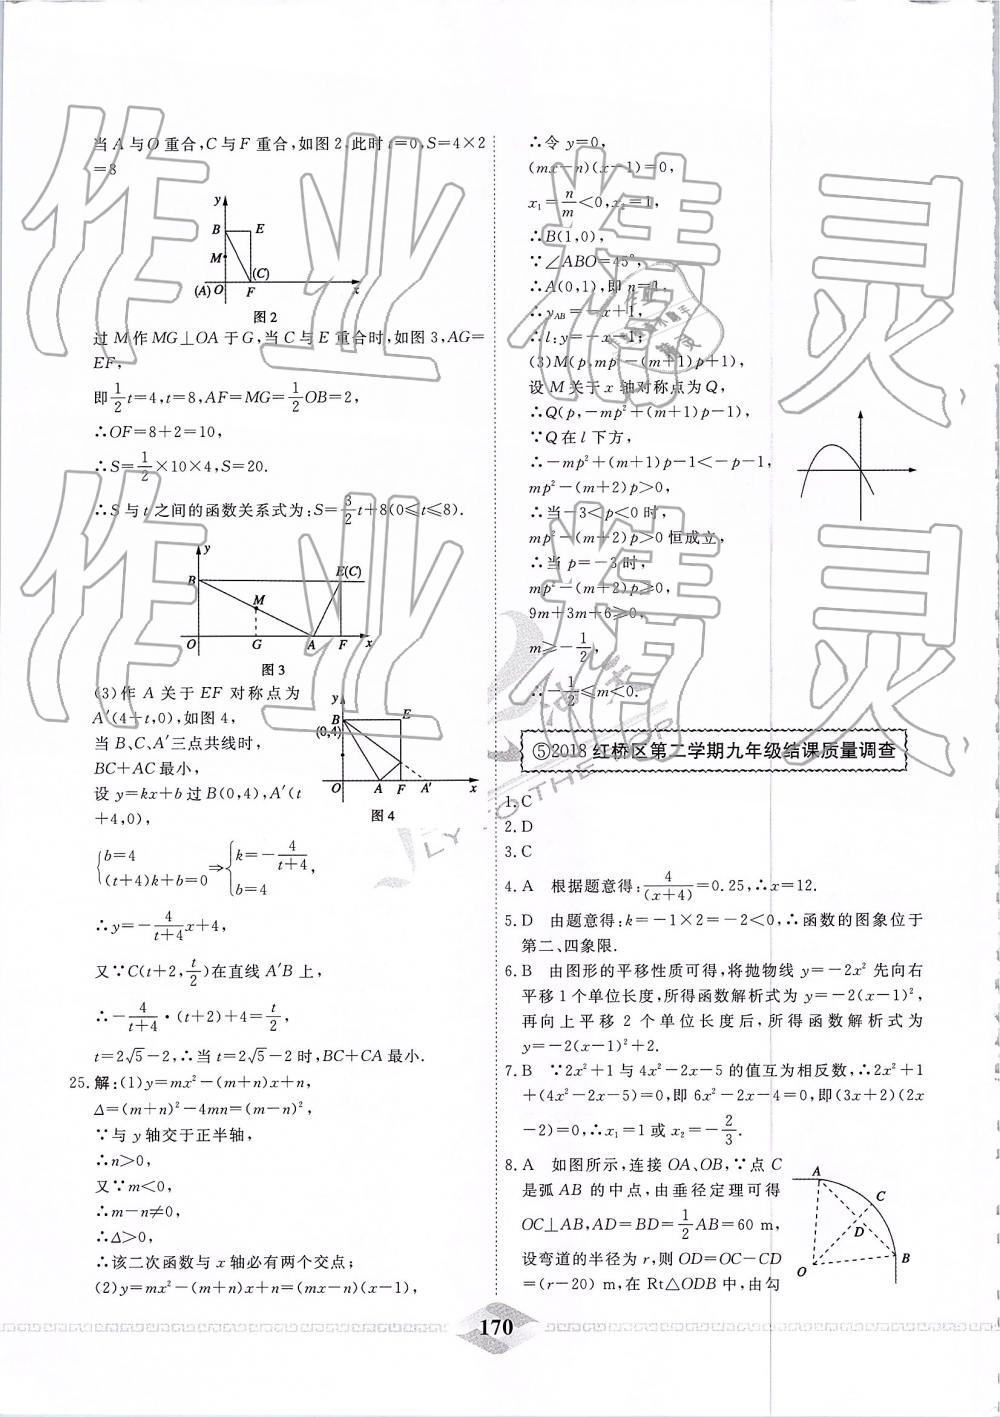 当 A 与 O 重合,C 与 F 重合,如图 2,此时 t=0,S=4×2
=8
y
B E
M
(C)
(A) O F x
图 2
过 M 作 MG⊥OA 于 G,当 C 与 E 重合时,如图 3,AG=
EF,
即 1/2 t=4,t=8,AF=MG=1/2 OB=2,
∴OF=8+2=10,
∴S=1/2×10×4,S=20.
∴S 与 t 之间的函数关系式为:S=3/2 t+8(0≤t≤8).
y
B E(C)
M
O G A F x
图 3
(3)作 A 关于 EF 对称点为
A′(4+t,0),如图 4,
当 B、C、A′三点共线时,
BC+AC 最小,
设 y=kx+b 过 B(0,4),A′(t
+4,0),
y
B E
(0,4)
O A F A′ x
图 4
{b=4
(t+4)k+b=0 ⇒ {k=-4/(t+4),
b=4
∴y=-4/(t+4) x+4,
又∵C(t+2,t/2)在直线 A′B 上,
∴-4/(t+4)·(t+2)+4=t/2,
t=2√5-2,∴当 t=2√5-2 时,BC+CA 最小.
25. 解:(1)y=mx²-(m+n)x+n,
Δ=(m+n)²-4mn=(m-n)²,
∵与 y 轴交于正半轴,
∴n>0,
又∵m<0,
∴m-n≠0,
∴Δ>0,
∴该二次函数与 x 轴必有两个交点;
(2)y=mx²-(m+n)x+n=(mx-n)(x-1),
∴令 y=0,
(mx-n)(x-1)=0,
x₁=n/m<0,x₂=1,
∴B(1,0),
∵∠ABO=45°,
∴A(0,1),即 n=1,
∴y_AB=-x+1,
∴l:y=-x-1;
(3)M(p,mp²-(m+1)p+1),
设 M 关于 x 轴对称点为 Q,
∴Q(p,-mp²+(m+1)p-1),
∵Q 在 l 下方,
∴-mp²+(m+1)p-1<-p-1,
mp²-(m+2)p>0,
∴当-3<p<0 时,
mp²-(m+2)p>0 恒成立,
∴当 p=-3 时,
mp²-(m+2)p≥0,
9m+3m+6≥0,
m≥-1/2,
∴-1/2≤m<0.
⑤2018 红桥区第二学期九年级结课质量调查
1. C
2. D
3. C
4. A 根据题意得:4/(x+4)=0.25,∴x=12.
5. D 由题意得:k=-1×2=-2<0,∴函数的图象位于
第二、四象限.
6. B 由图形的平移性质可得,将抛物线 y=-2x² 先向右
平移 1 个单位长度,所得函数解析式为 y=-2(x-1)²,
再向上平移 2 个单位长度后,所得函数解析式为
y=-2(x-1)²+2.
7. B ∵2x²+1 与 4x²-2x-5 的值互为相反数,∴2x²+1
+(4x²-2x-5)=0,即 6x²-2x-4=0,即(3x+2)(2x
-2)=0,∴x₁=1 或 x₂=-2/3.
8. A 如图所示,连接 OA、OB,∵点 C
是弧 AB 的中点,由垂径定理可得
OC⊥AB,AD=BD=1/2 AB=60 m,
设弯道的半径为 r,则 OD=OC-CD
=(r-20) m,在 Rt△ODB 中,由勾
A
C
D
O B
170
作业精灵
作业精灵